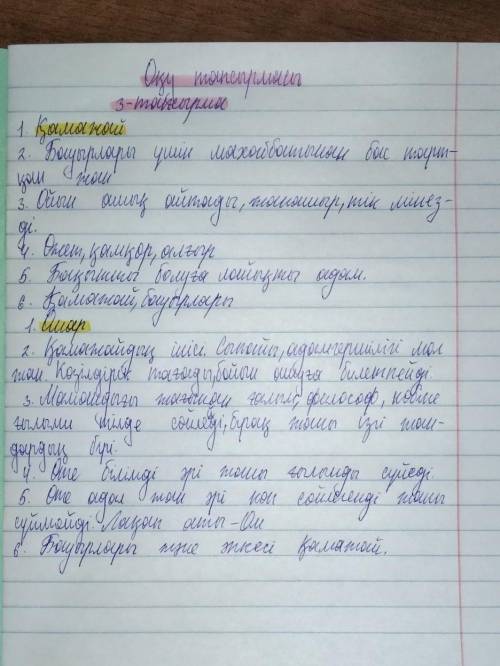 Оқу тапсырмасы
3-тапсырма
1. Қамажай
2. Бауырлары үшін махаббатынан бас тарт-
қан жан
3. Ойын ашық айтады, жанашыр, тік мінез-
ді.
4. Өжет, қамқор, алғыр
5. Бақытты болуға лайықты адам.
6. Қамажай, бауырлары
1. Омар
2. Қамажайдың інісі. Сыпайы, адамгершілігі мол
жан. Көзілдірік тағады, бойын
3. Мамандығы жағынан ғалым, философ, көбіне
ғылыми тілде сөйлейді, бірақ жаны ізгі жан-
дардың бірі.
4. Өте білімді әрі жаны ғылымды сүйеді
5. Өте адал жан әрі көп сөйлегенді жаны
сүймейді. Лақап аты - Ом
6. Бауырлары және әкесі Қамажай.